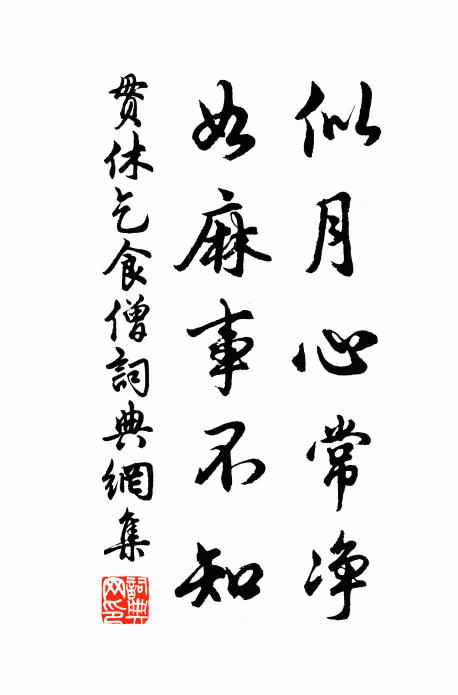 似月心常净
如麻事不知
贯休乞食僧詞典網集
詞典网印